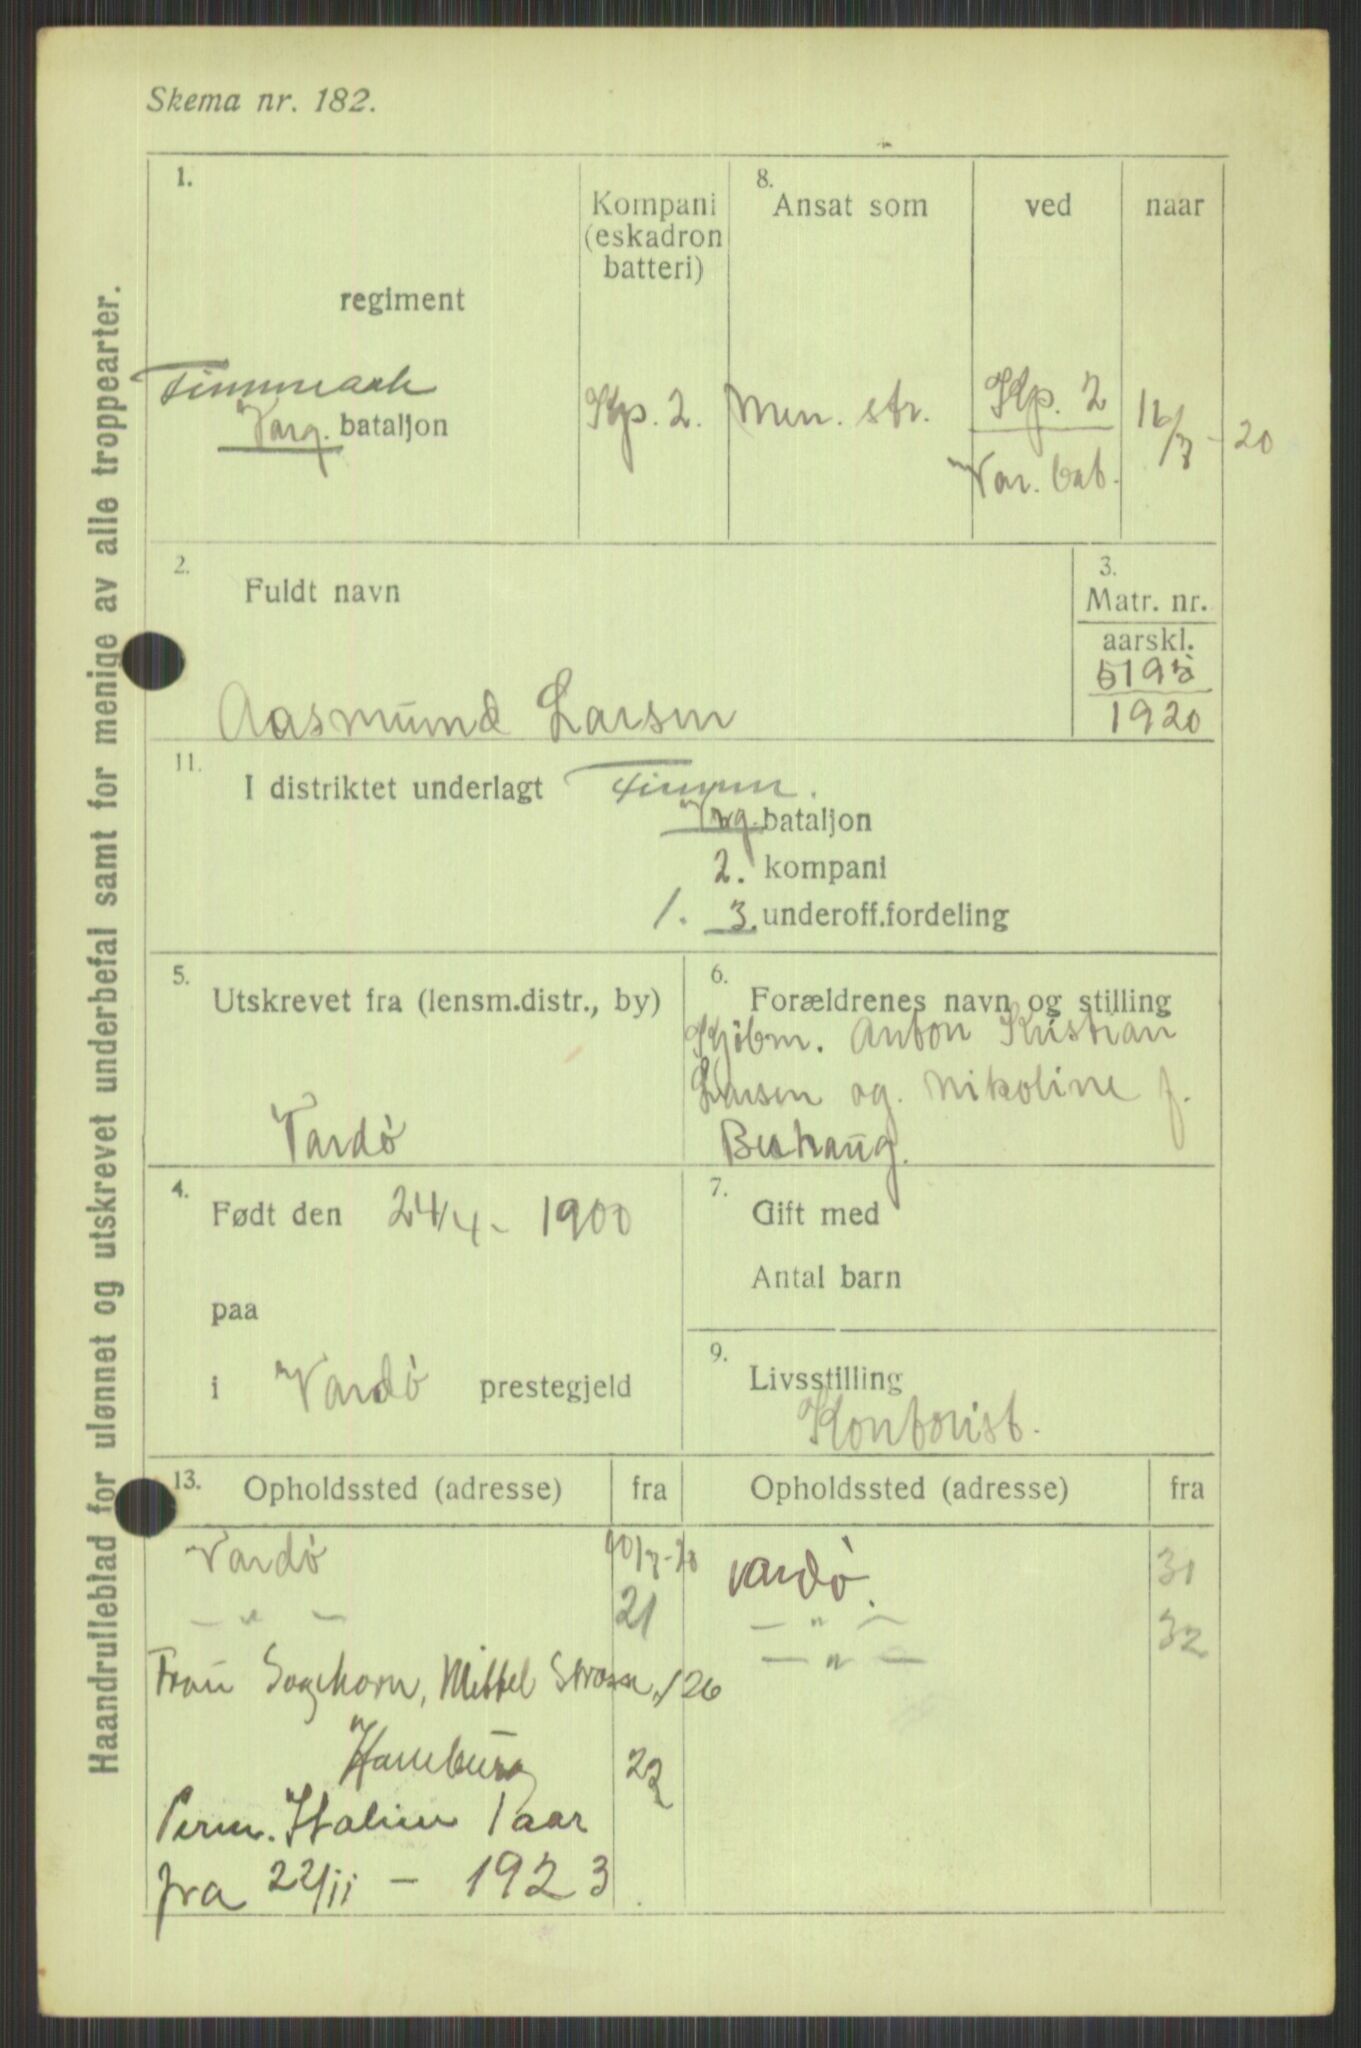 Skema nr. 182.
Haandrulleblad for ulønnet og utskrevet underbefal samt for menige av alle troppearter.
1.
regiment
Finnmark
Varg. bataljon
Kompani
(eskadron
batteri)
Kp. 2.
8.
Ansat som
Men. str.
ved
Kp. 2
Var. bat.
naar
16/7 - 20
2.
Fuldt navn
Aasmund Larsen
3.
Matr. nr.
aarskl.
5195
1920
11.
I distriktet underlagt Finnm.
Vrg. bataljon
2. kompani
1. 3. underoff.fordeling
5.
Utskrevet fra (lensm.distr., by)
Vardø
6.
Forældrenes navn og stilling
Kjøbm. Anton Kristian
Larsen og Nikoline f.
4.
Født den 24/4 - 1900
paa
i Vardø prestegjeld
7.
Gift med
Antal barn
9.
Livsstilling
Kontorist.
13.
Opholdssted (adresse) fra
Vardø
— " — 21
Frau Sagehorn, Mittel Strasse, 126
Hamburg 22
Perm. Italien 1 aar
fra 22/11 - 1923
Opholdssted (adresse) fra
Vardø. 31
— " — 32
— " —